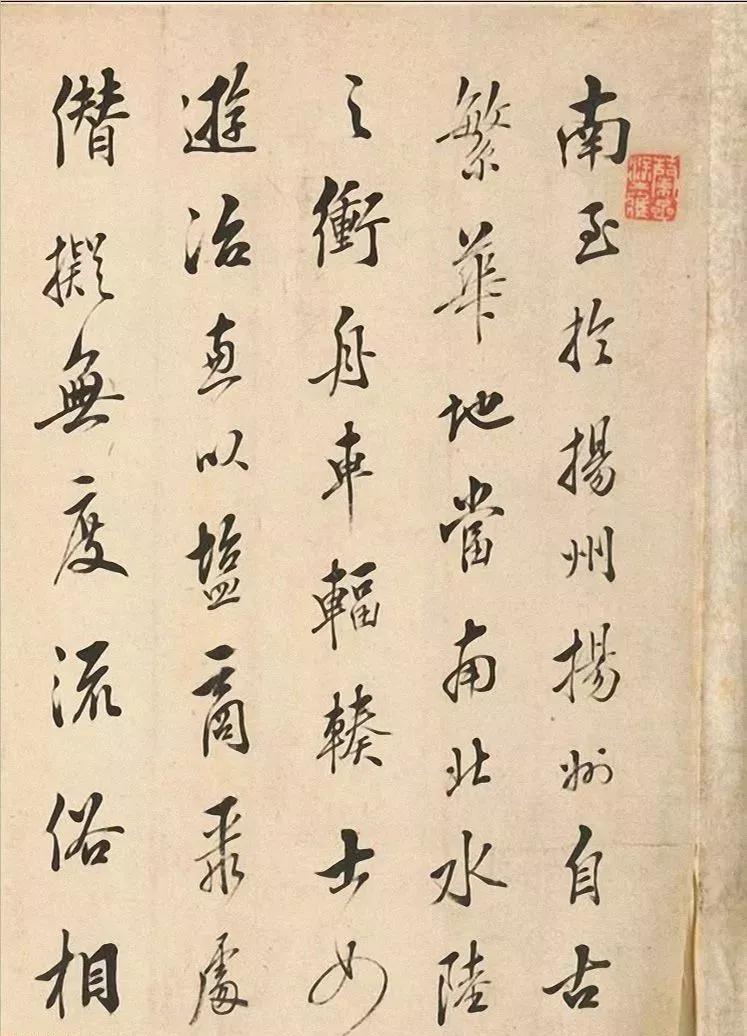 南至於揚州揚州自古
繁華地當南北水陸
之衝舟車輻輳士女
遊冶更以鹽商聚處
僭擬無度流俗相